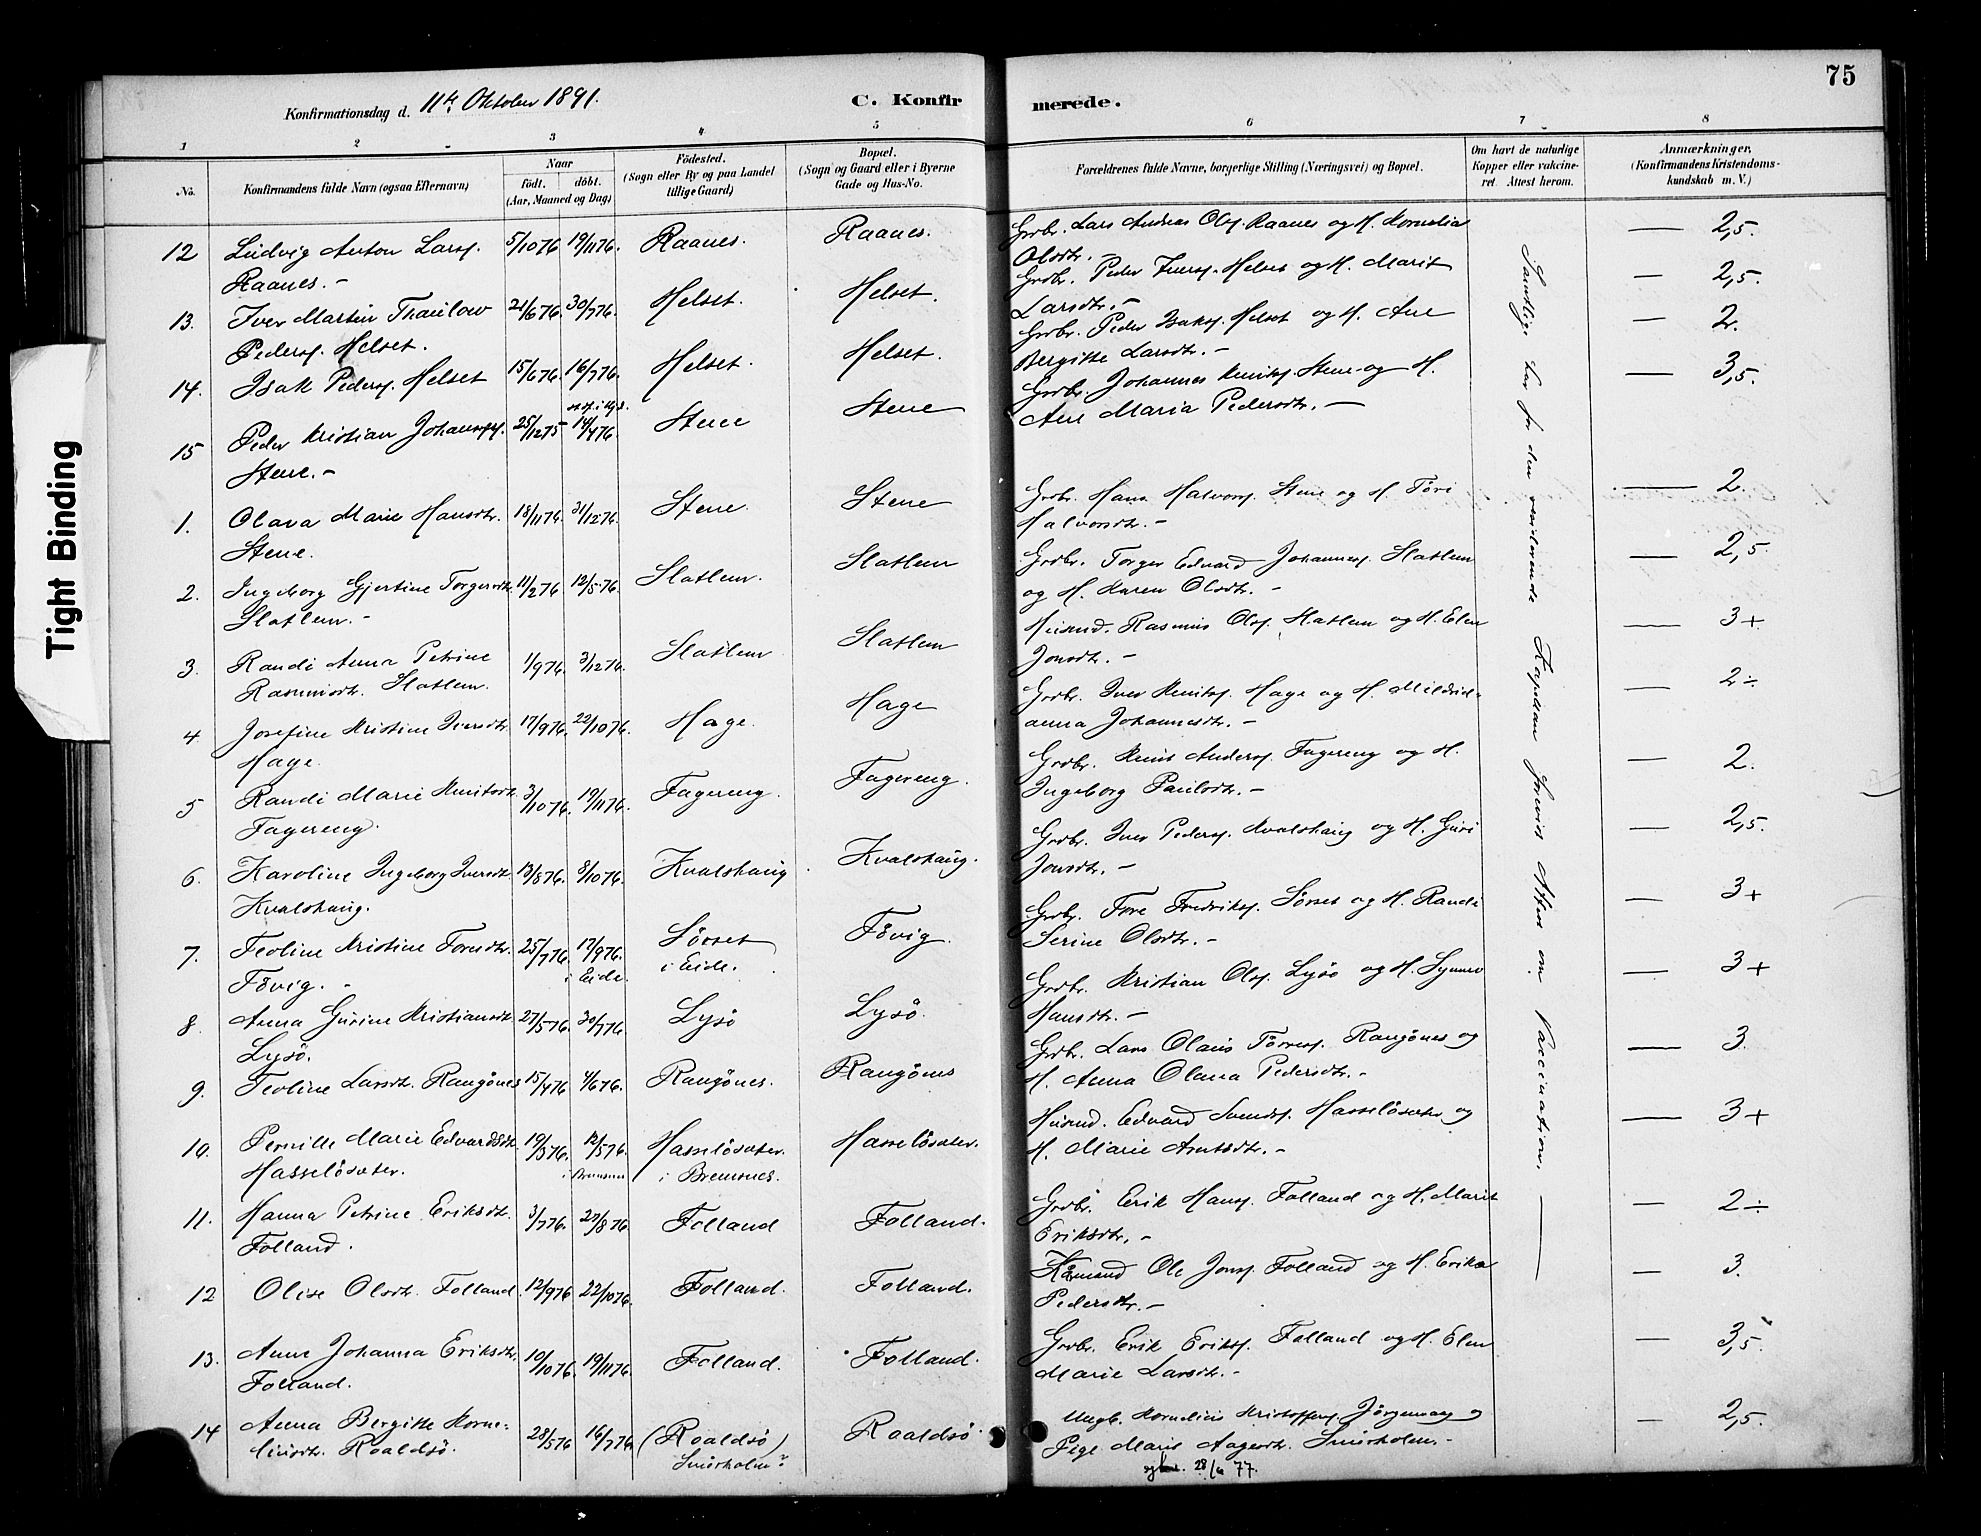 75
Konfirmationsdag d. 11te Oktober 1891.
C. Konfirmerede.
1 2 3 4 5 6 7 8
No.
Konfirmandens fulde Navn (ogsaa Efternavn)
Naar
födt. döbt.
(Aar, Maaned og Dag)
Födested.
(Sogn eller By og paa Landet
tillige Gaard)
Bopæl.
(Sogn og Gaard eller i Byerne
Gade og Hus-No.
Forældrenes fulde Navne, borgerlige Stilling (Næringsvei) og Bopæl.
Om havt de naturlige
Kopper eller vakcine-
ret. Attest herom.
Anmærkninger.
(Konfirmandens Kristendoms-
kundskab m. V.)
12 Ludvig Anton Larss. 5/10 76 19/11 76. Raanes. Raanes. Grdbr. Lars Andreas Ols. Raanes og H. Kornelia — 2,5.
Raanes.- Olsdtr. -
13. Iver Martin Thaulow 21/6 76. 30/7 76. Helset. Helset. Grdbr. Peder Iverss. Helset og H. Marit — 2,5.
Peders. Helset. Larsdtr. -
14. Isak Peders. Helset 15/6 76. 16/7 76. Helset. Helset. Grdbr. Peder Isaks. Helset og H. Ane — 2.
Bergitte Larsdtr. -
15 Peder Kristian Johanness. 25/12 75 14/4 76. Stene Stene Grdbr. Johannes Knuts. Stene og H. — 3,5.
Stene. - Ane Maria Pedersdtr. -
1. Olava Marie Hansdtr. 18/11 76. 31/12 76. Stene. Stene Grdbr. Hans Halvors. Stene og H. Töri — 2.
Stene. Halvorsdtr. -
2. Ingeborg Gjertine Torgersdtr. 11/2 76 12/5 76. Slatlem. Slatlem Grdbr. Torger Edvard Johanness. Slatlem — 2,5.
Slatlem. - og H. Karen Olsdtr. -
3. Randi Anna Petrine 1/9 76. 3/12 76. Slatlem Slatlem Husmd. Rasmus Ols. Slatlem og H. Elen — 3+
Rasmusdtr. Slatlem. Jonsdtr. -
4 Josefine Kristine Iversdtr. 17/9 76. 22/10 76. Hage. Hage Grdbr. Iver Knuts. Hage og H. Mildrid- — 2÷
Hage. anna Johannesdtr. -
5 Randi Marie Knutsdtr. 3/10 76. 19/11 76. Fagereng. Fagereng. Grdbr. Knut Anders. Fagereng og H. — 2.
Fagereng. Ingeborg Paulsdtr. -
6. Karoline Ingeborg Iversdtr. 13/8 76. 8/10 76. Kvalshaug Kvalshaug. Grdbr. Iver Peders. Kvalshaug og H. Guri — 2,5.
Kvalshaug. Jonsdtr. -
7. Teoline Kristine Toresdtr. 25/7 76. 17/9 76. Sörset Tövig. Grdbr. Tore Fredriks. Sörset og H. Randi — 3+
Tövig. - i Eide. i Eide. Serine Olsdtr. -
8. Anna Gurine Kristiansdtr. 27/5 76. 30/7 76. Lysö Lysö. Grdbr. Kristian Ols. Lysö og H. Synnev — 3+
Lysö. Hansdtr. -
9. Teoline Larsdtr. Rangönes 15/4 76 4/6 76. Rangönes. Rangönes Grdbr. Lars Olaus Törress. Rangönes og — 3.
H. Anna Olana Pedersdtr. -
10. Pernille Marie Edvardsdtr. 19/3 76. 12/5 76. Hasselösæter. Hasselösæter. Husmd. Edvard Svends. Hasselösæter og — 3+
Hasselösæter. i Bremsnes i Bremsnes. H. Marie Arntsdtr. -
11. Hanna Petrine Eriksdtr. 3/7 76. 27/8 76. Folland Folland. Grdbr. Erik Hanss. Folland og H. Marit — 2÷
Folland. Eriksdtr. -
12 Olise Olsdtr. Folland 12/9 76 22/10 76. Folland. Folland. Kaarmand Ole Jonss. Folland og H. Erika — 3.
Pedersdtr. -
13. Anne Johanna Eriksdtr. 10/10 76. 19/11 76. Folland. Folland. Grdbr. Erik Eriks. Folland og H. Elen — 3,5.
Folland. Marie Larsdtr. -
14 Anna Bergitte Korne- 28/5 76 16/7 76 (Roaldsö) Roaldsö. Ungk. Kornelius Kristoffers. Jörgenvaag og — 2,5.
liusdtr. Roaldsö. Smörholm? Pige Marit Aagesdtr. Smörholm. -
28/6 77.
Samtlige har for den vedkommende Kapellan forevist Attest om Vaccination.
Tight Binding